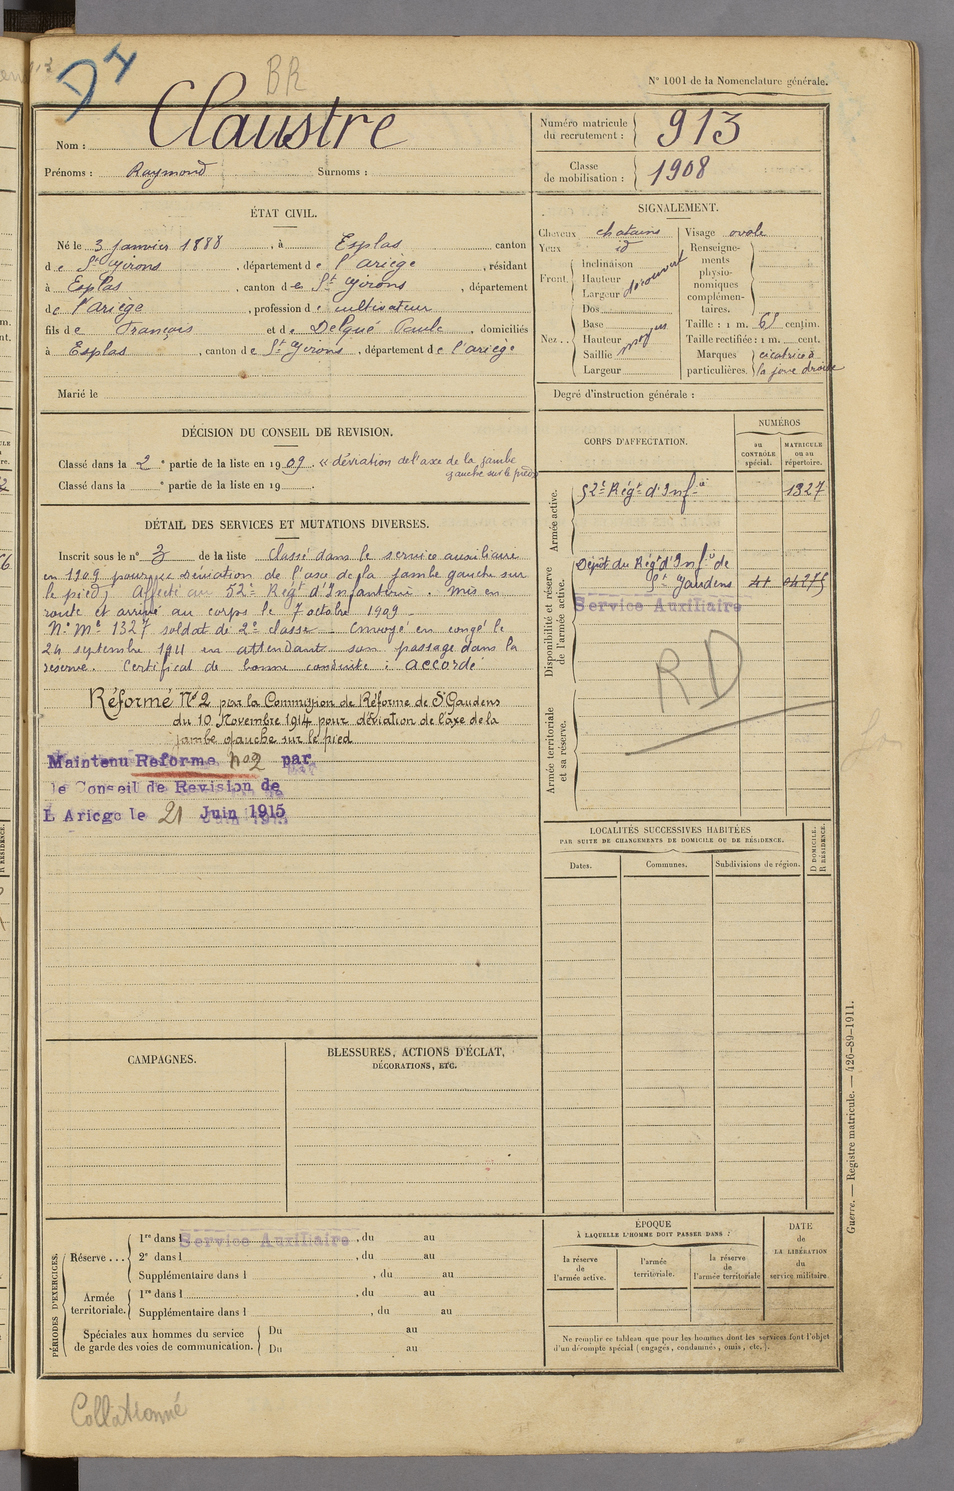 D4
BR
N° 1001 de la Nomenclature générale.
Nom : Claustre
Prénoms : Raymond Surnoms :
Numéro matricule du recrutement : 913
Classe de mobilisation : 1908
ÉTAT CIVIL.
Né le 3 janvier 1888, à Esplas canton
de St Girons, département de l'Ariège, résidant
à Esplas, canton de St Girons, département
de l'Ariège, profession de cultivateur
fils de François et de Delqué Paule, domiciliés
à Esplas, canton de St Girons, département de l'ariège
Marié le
SIGNALEMENT.
Cheveux chatains
Yeux id
Front. Inclinaison
Hauteur
Largeur découvert
Nez . . Dos
Base
Hauteur
Saillie moyen
Largeur
Visage ovale
Renseignements physionomiques complémentaires.
Taille : 1 m. 65 centim.
Taille rectifiée : 1 m. cent.
Marques particulières. cicatrice à
la joue droite
Degré d'instruction générale :
DÉCISION DU CONSEIL DE REVISION.
Classé dans la 2e partie de la liste en 1909. « déviation de l'axe de la jambe
gauche sur le pied
Classé dans la e partie de la liste en 19 .
DÉTAIL DES SERVICES ET MUTATIONS DIVERSES.
Inscrit sous le n° 3 de la liste Classé dans le service auxiliaire
en 1909 pour Déviation de l'axe de la jambe gauche sur
le pied; Affecté au 52e Régt d'Infanterie. Mis en
route et arrivé au corps le 7 octobre 1909
N° Mle 1327 soldat de 2e classe. Envoyé en congé le
24 septembre 1911 en attendant son passage dans la
réserve. Certificat de bonne conduite : accordé
Réformé N°2 par la Commission de Réforme de St Gaudens
du 10 Novembre 1914 pour déviation de l'axe de la
jambe gauche sur le pied
Maintenu Reforme n°2 par
le Conseil de Revision de
L Ariege le 21 Juin 1915
CORPS D'AFFECTATION.
NUMÉROS
au CONTRÔLE spécial.
MATRICULE ou au répertoire.
Armée active.
52e Régt d'Infie 1327
Disponibilité et réserve de l'armée active.
Dépôt du Régt d'Infie de
St Gaudens
Service Auxiliaire
RD
Armée territoriale et sa réserve.
LOCALITÉS SUCCESSIVES HABITÉES
PAR SUITE DE CHANGEMENTS DE DOMICILE OU DE RÉSIDENCE.
Dates. Communes. Subdivisions de région. D DOMICILE. R RÉSIDENCE.
CAMPAGNES.
BLESSURES, ACTIONS D'ÉCLAT,
DÉCORATIONS, ETC.
PÉRIODES D'EXERCICES.
Réserve . . . 1re dans l Service Auxiliaire, du au
2e dans l , du au
Supplémentaire dans l , du au
Armée territoriale. 1re dans l , du au
Supplémentaire dans l , du au
Spéciales aux hommes du service
de garde des voies de communication. Du au
Du au
ÉPOQUE
À LAQUELLE L'HOMME DOIT PASSER DANS :
la réserve de l'armée active.
l'armée territoriale.
la réserve de l'armée territoriale
DATE de LA LIBÉRATION du service militaire
Ne remplir ce tableau que pour les hommes dont les services font l'objet
d'un décompte spécial (engagés, condamnés, omis, etc.).
Guerre. — Registre matricule. — 426-89-1911.
Collationné